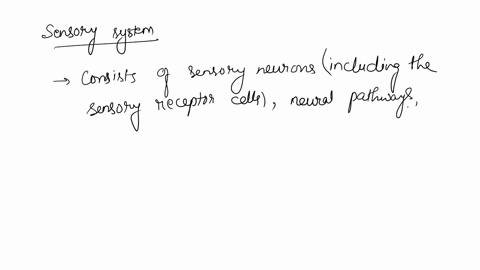 Sensory system
→ Consists of sensory neurons (including the
sensory receptor cells), neural pathways,